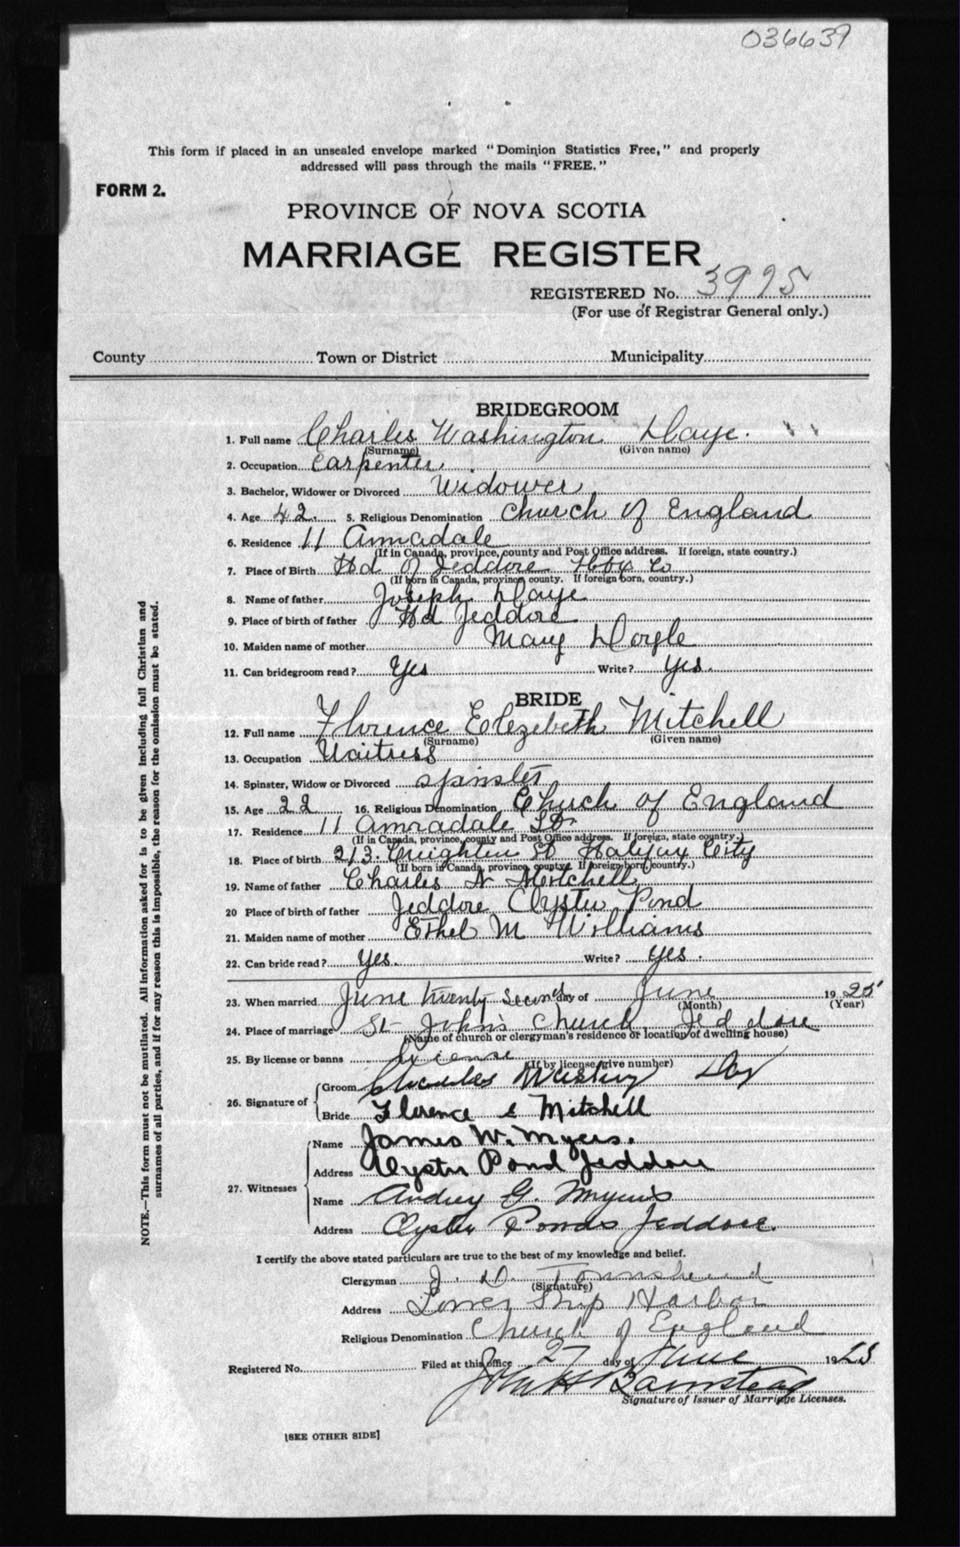 036639
This form if placed in an unsealed envelope marked "Dominion Statistics Free," and properly
addressed will pass through the mails "FREE."
FORM 2.
PROVINCE OF NOVA SCOTIA
MARRIAGE REGISTER
REGISTERED No. 3995
(For use of Registrar General only.)
County Town or District Municipality
BRIDEGROOM
1. Full name Charles Washington Daye.
(Surname) (Given name)
2. Occupation Carpenter
3. Bachelor, Widower or Divorced Widower
4. Age 42 5. Religious Denomination Church of England
6. Residence 11 Annadale
(If in Canada, province, county and Post Office address. If foreign, state country.)
7. Place of Birth Hd of Jeddore Hfx Co
(If born in Canada, province county. If foreign born, country.)
8. Name of father Joseph Daye
9. Place of birth of father Hd Jeddore
10. Maiden name of mother Mary Doyle
11. Can bridegroom read? Yes Write? Yes.
BRIDE
12. Full name Florence Elezebeth Mitchell
(Surname) (Given name)
13. Occupation Waitress
14. Spinster, Widow or Divorced spinster
15. Age 22 16. Religious Denomination Church of England
17. Residence 11 Annadale St
(If in Canada, province, county and Post Office address. If foreign, state country.)
18. Place of birth 213 Creighton St Halifax City
(If born in Canada, province county. If foreign born, country.)
19. Name of father Charles Mitchell
20 Place of birth of father Jeddore Oyster Pond
21. Maiden name of mother Ethel M Williams
22. Can bride read? Yes. Write? Yes.
23. When married June twenty second day of June 1925
(Month) (Year)
24. Place of marriage St John's Church, Jeddore
(Name of church or clergyman's residence or location of dwelling house)
25. By license or banns License
(If by license, give number)
26. Signature of Groom Charles Day
Bride Florence E Mitchell
27. Witnesses Name James W. Myers.
Address Oyster Pond Jeddore
Name Audrey G. Myers
Address Oyster Ponds Jeddore.
I certify the above stated particulars are true to the best of my knowledge and belief.
Clergyman J. D. Townshend
(Signature)
Address Lower Ship Harbor
Religious Denomination Church of England
Registered No. Filed at this office 27 day of June 1925
Signature of Issuer of Marriage Licenses.
[SEE OTHER SIDE]
NOTE.—This form must not be mutilated. All information asked for is to be given including full Christian and
surnames of all parties, and if for any reason this is impossible, the reason for the omission must be stated.